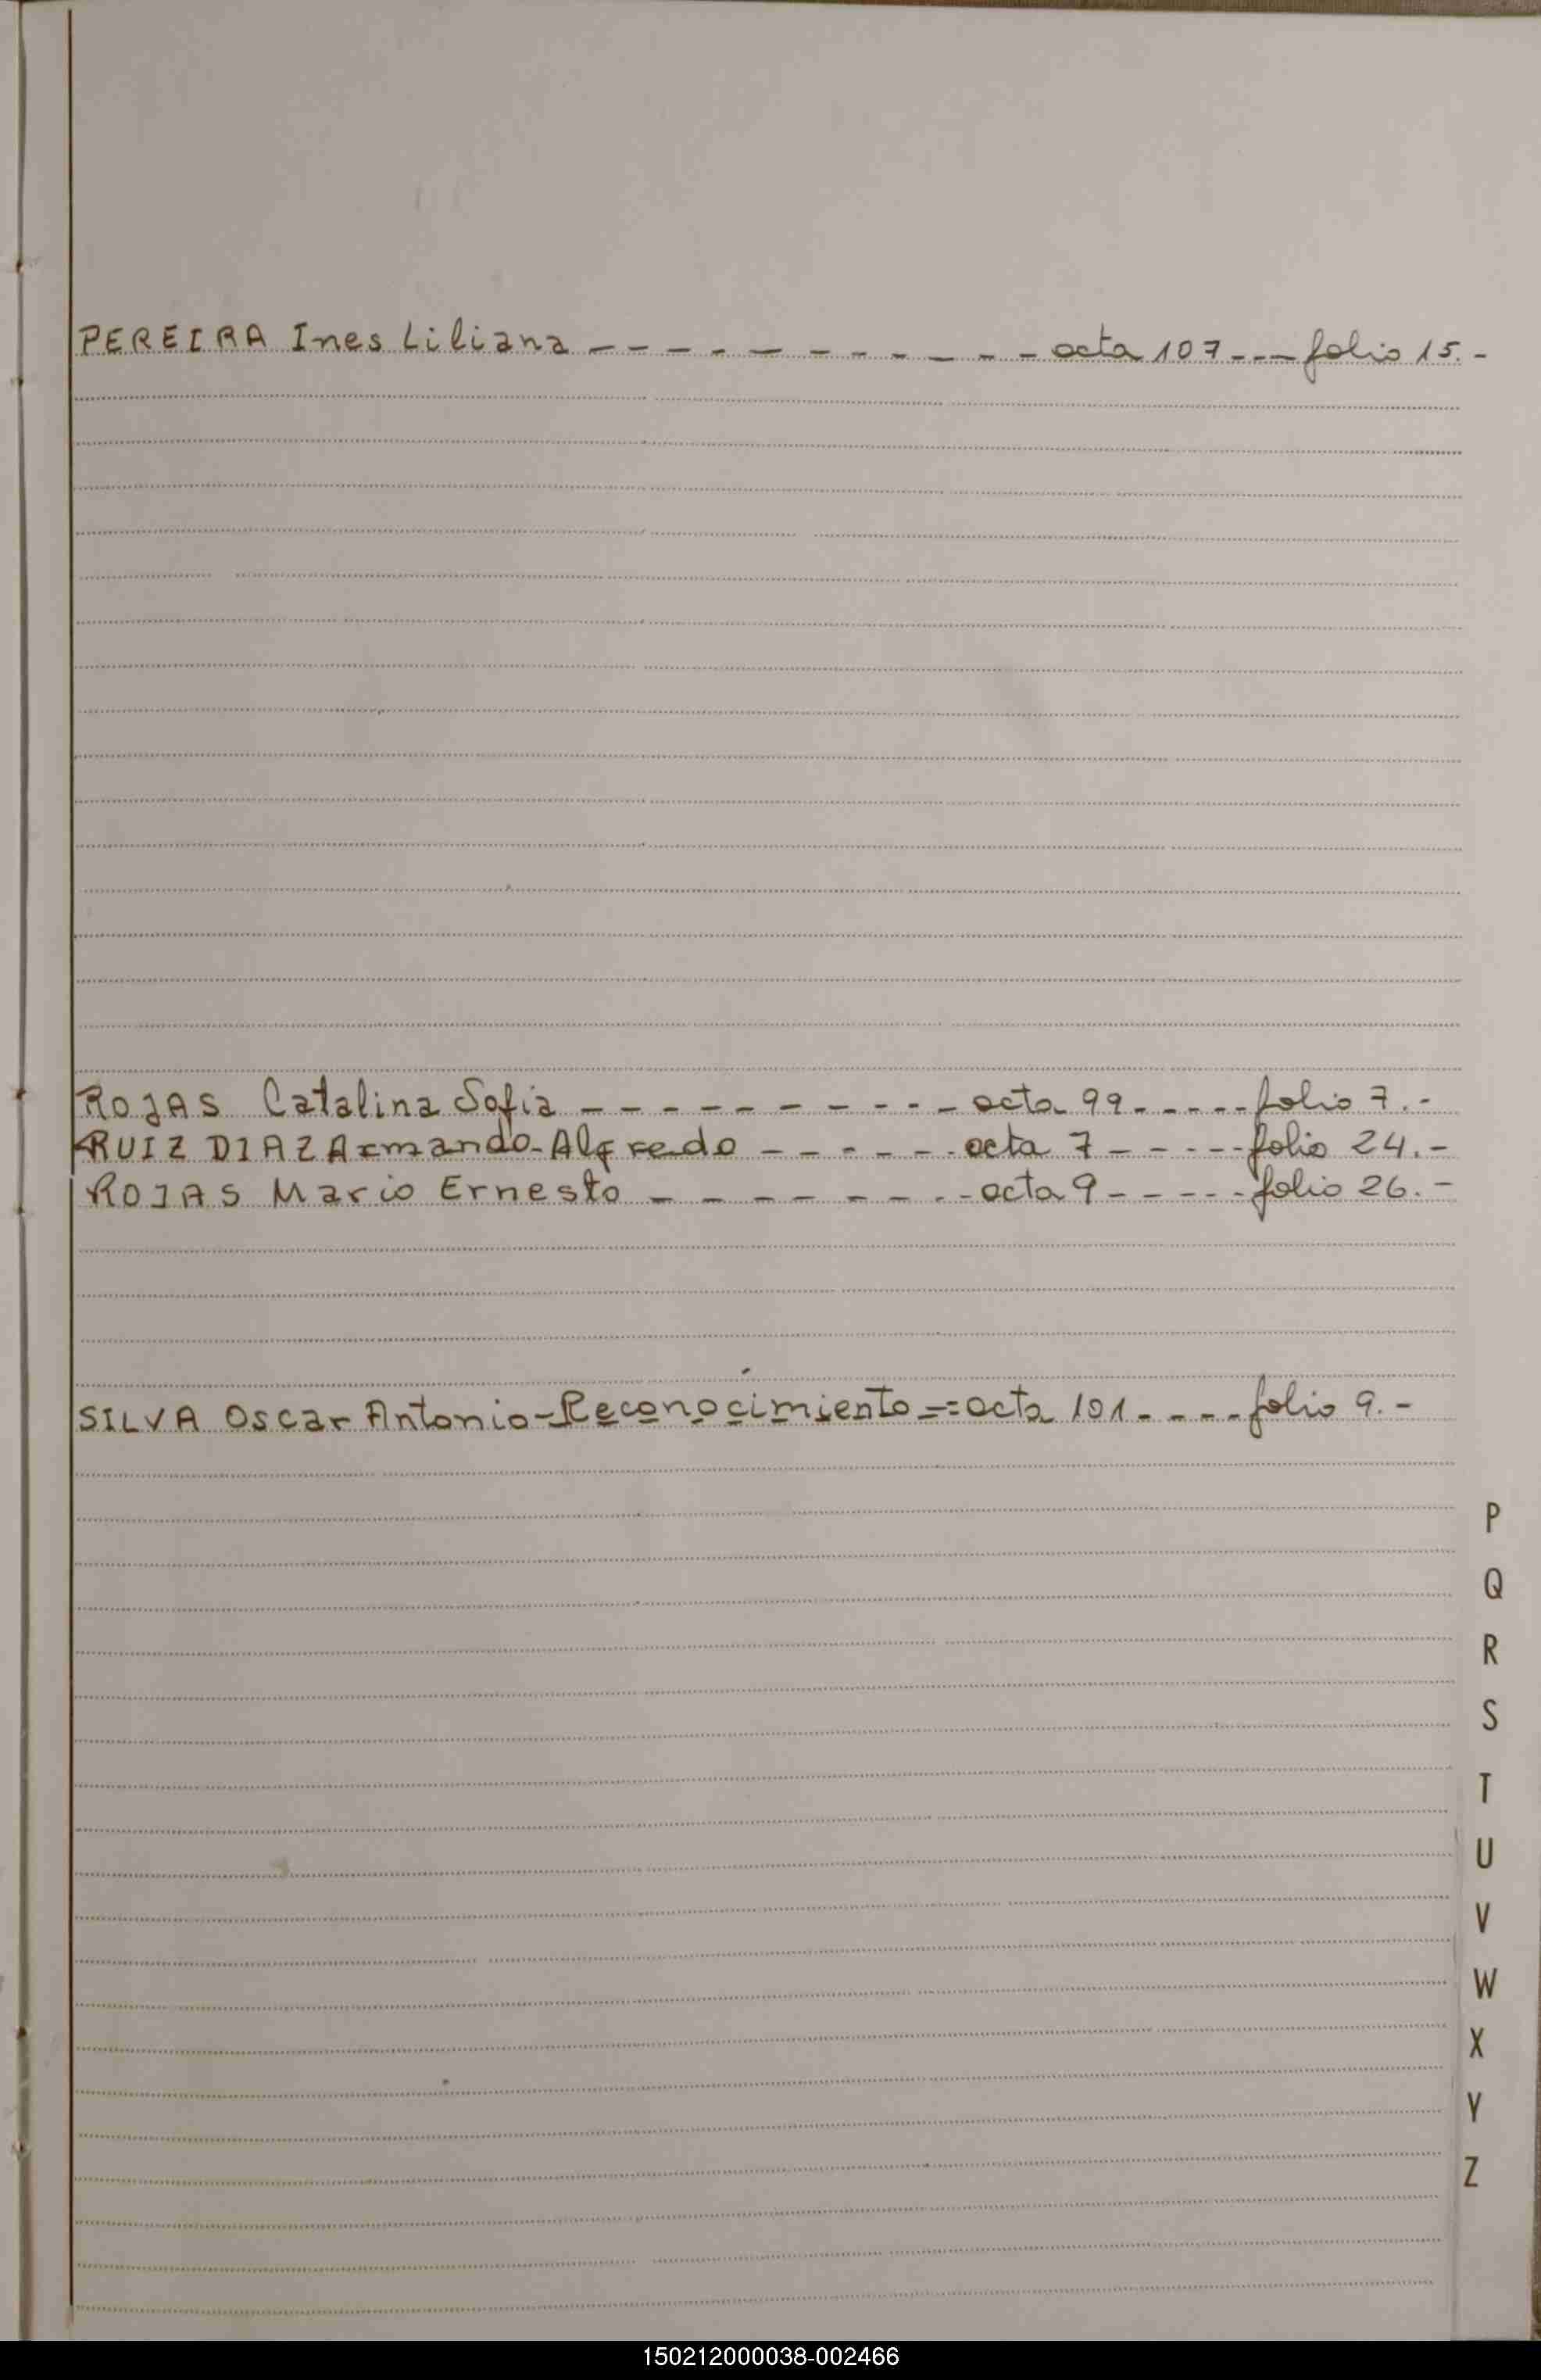 PEREIRA Ines Liliana - - - - - - - - - - - acta 107 - - - folio 15. -
ROJAS Catalina Sofia - - - - - - - - - - - acta 99 - - - - - folio 7. -
RUIZ DIAZ Armando - Alfredo - - - - - - acta 7 - - - - - folio 24. -
ROJAS Mario Ernesto - - - - - - - - acta 9 - - - - - folio 26. -
SILVA Oscar Antonio - Reconocimiento - = acta 101 - - - - folio 9. -
P
Q
R
S
T
U
V
W
X
Y
Z
150212000038-002466